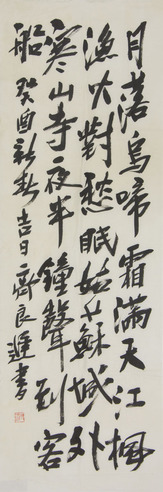 月落烏啼霜滿天江楓
漁火對愁眠姑蘇城外
寒山寺夜半鐘聲到客
船 癸酉新春吉日 齊良遲書